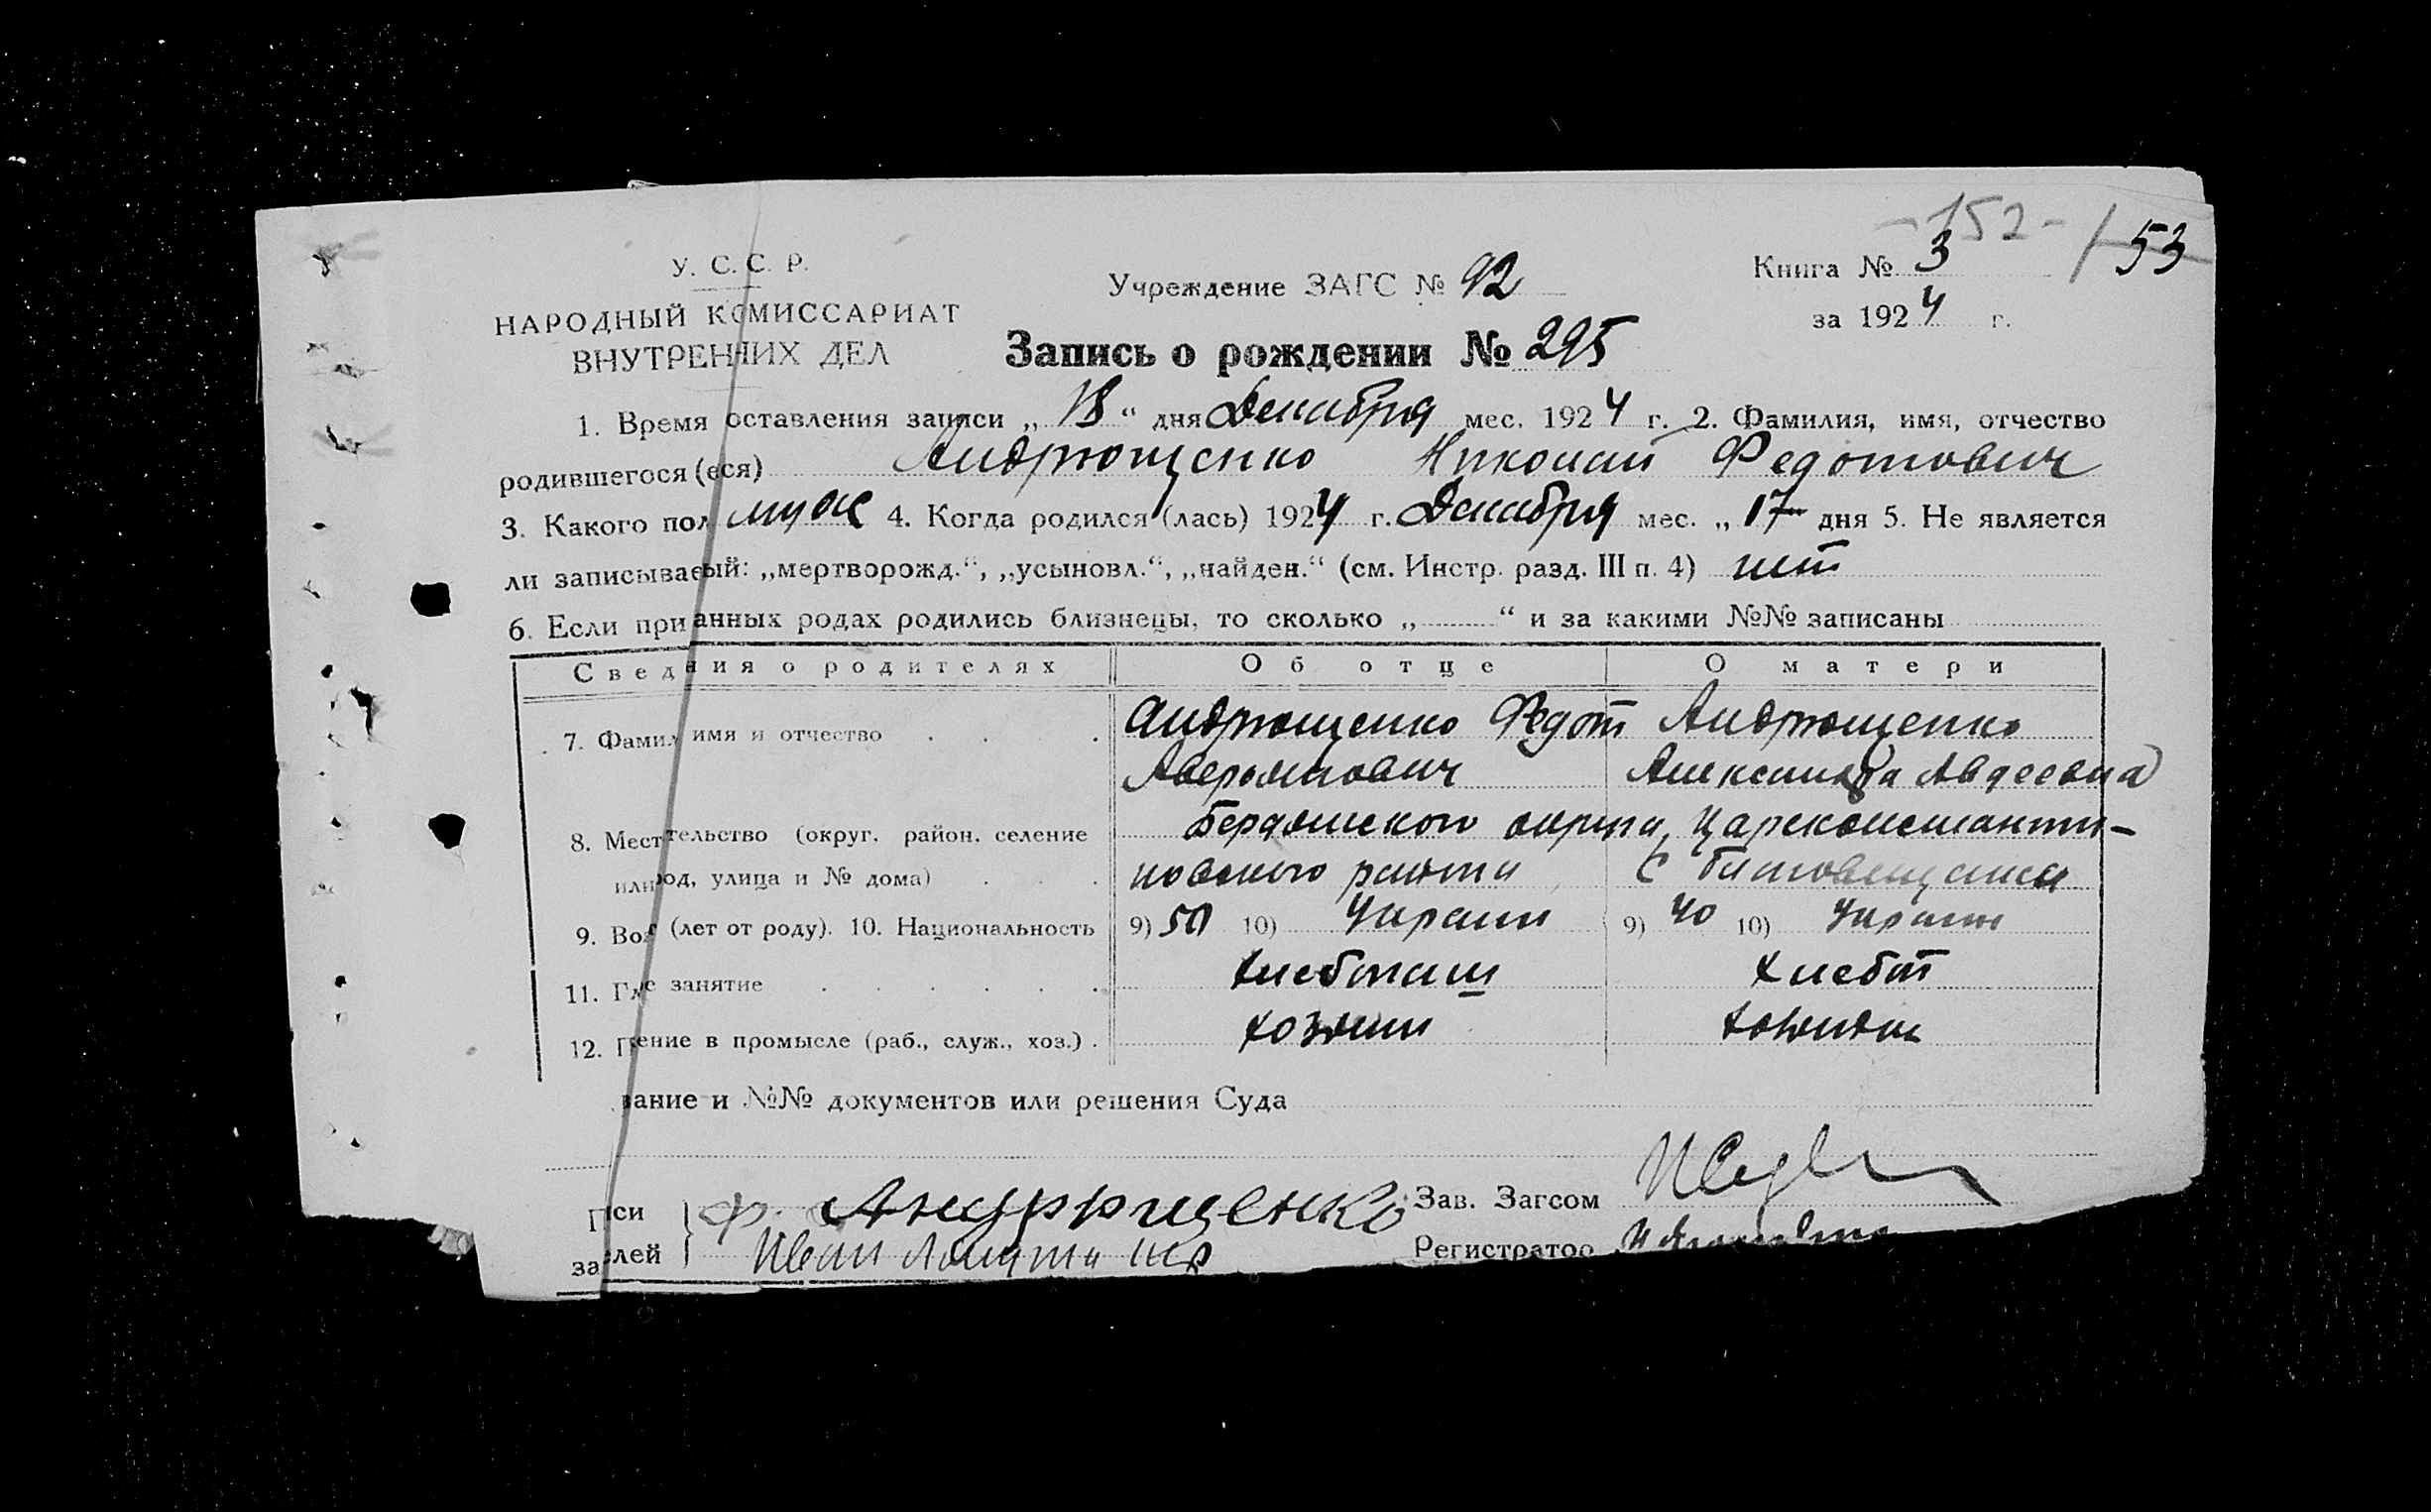 -152- 153
У. С. С. Р.
НАРОДНЫЙ КОМИССАРИАТ
ВНУТРЕННИХ ДЕЛ
Учреждение ЗАГС № 92
Книга № 3
за 1924 г.
Запись о рождении № 295
1. Время оставления записи „ 18 “ дня Декабря мес. 1924 г. 2. Фамилия, имя, отчество
родившегося (еся) Андрющенко Николай Федотович
3. Какого пол муж 4. Когда родился (лась) 1924 г. Декабря мес. „ 17 дня 5. Не является
ли записываеый: „мертворожд.“, „усыновл.“, „найден.“ (см. Инстр. разд. III п. 4) нет
6. Если при анных родах родились близнецы, то сколько „ “ и за какими №№ записаны
Сведния о родителях Об отце О матери
7. Фамил имя и отчество Андрющенко Федот Андрющенко
Аверьянович Александра Авдеевна
8. Мест тельство (округ, район, селение Бердянского округа, Цареконстанти-
или род, улица и № дома) новского района с Благовещенка
9. Воз (лет от роду). 10. Национальность 9) 50 10) Украин 9) 40 10) Украин
11. Гл е занятие Хлебопаш Хлебоп
12. П ение в промысле (раб., служ., хоз.) хозяин
вание и №№ документов или решения Суда
П си Ф. Андррщенко Зав. Загсом
за лей Иван Регистратор